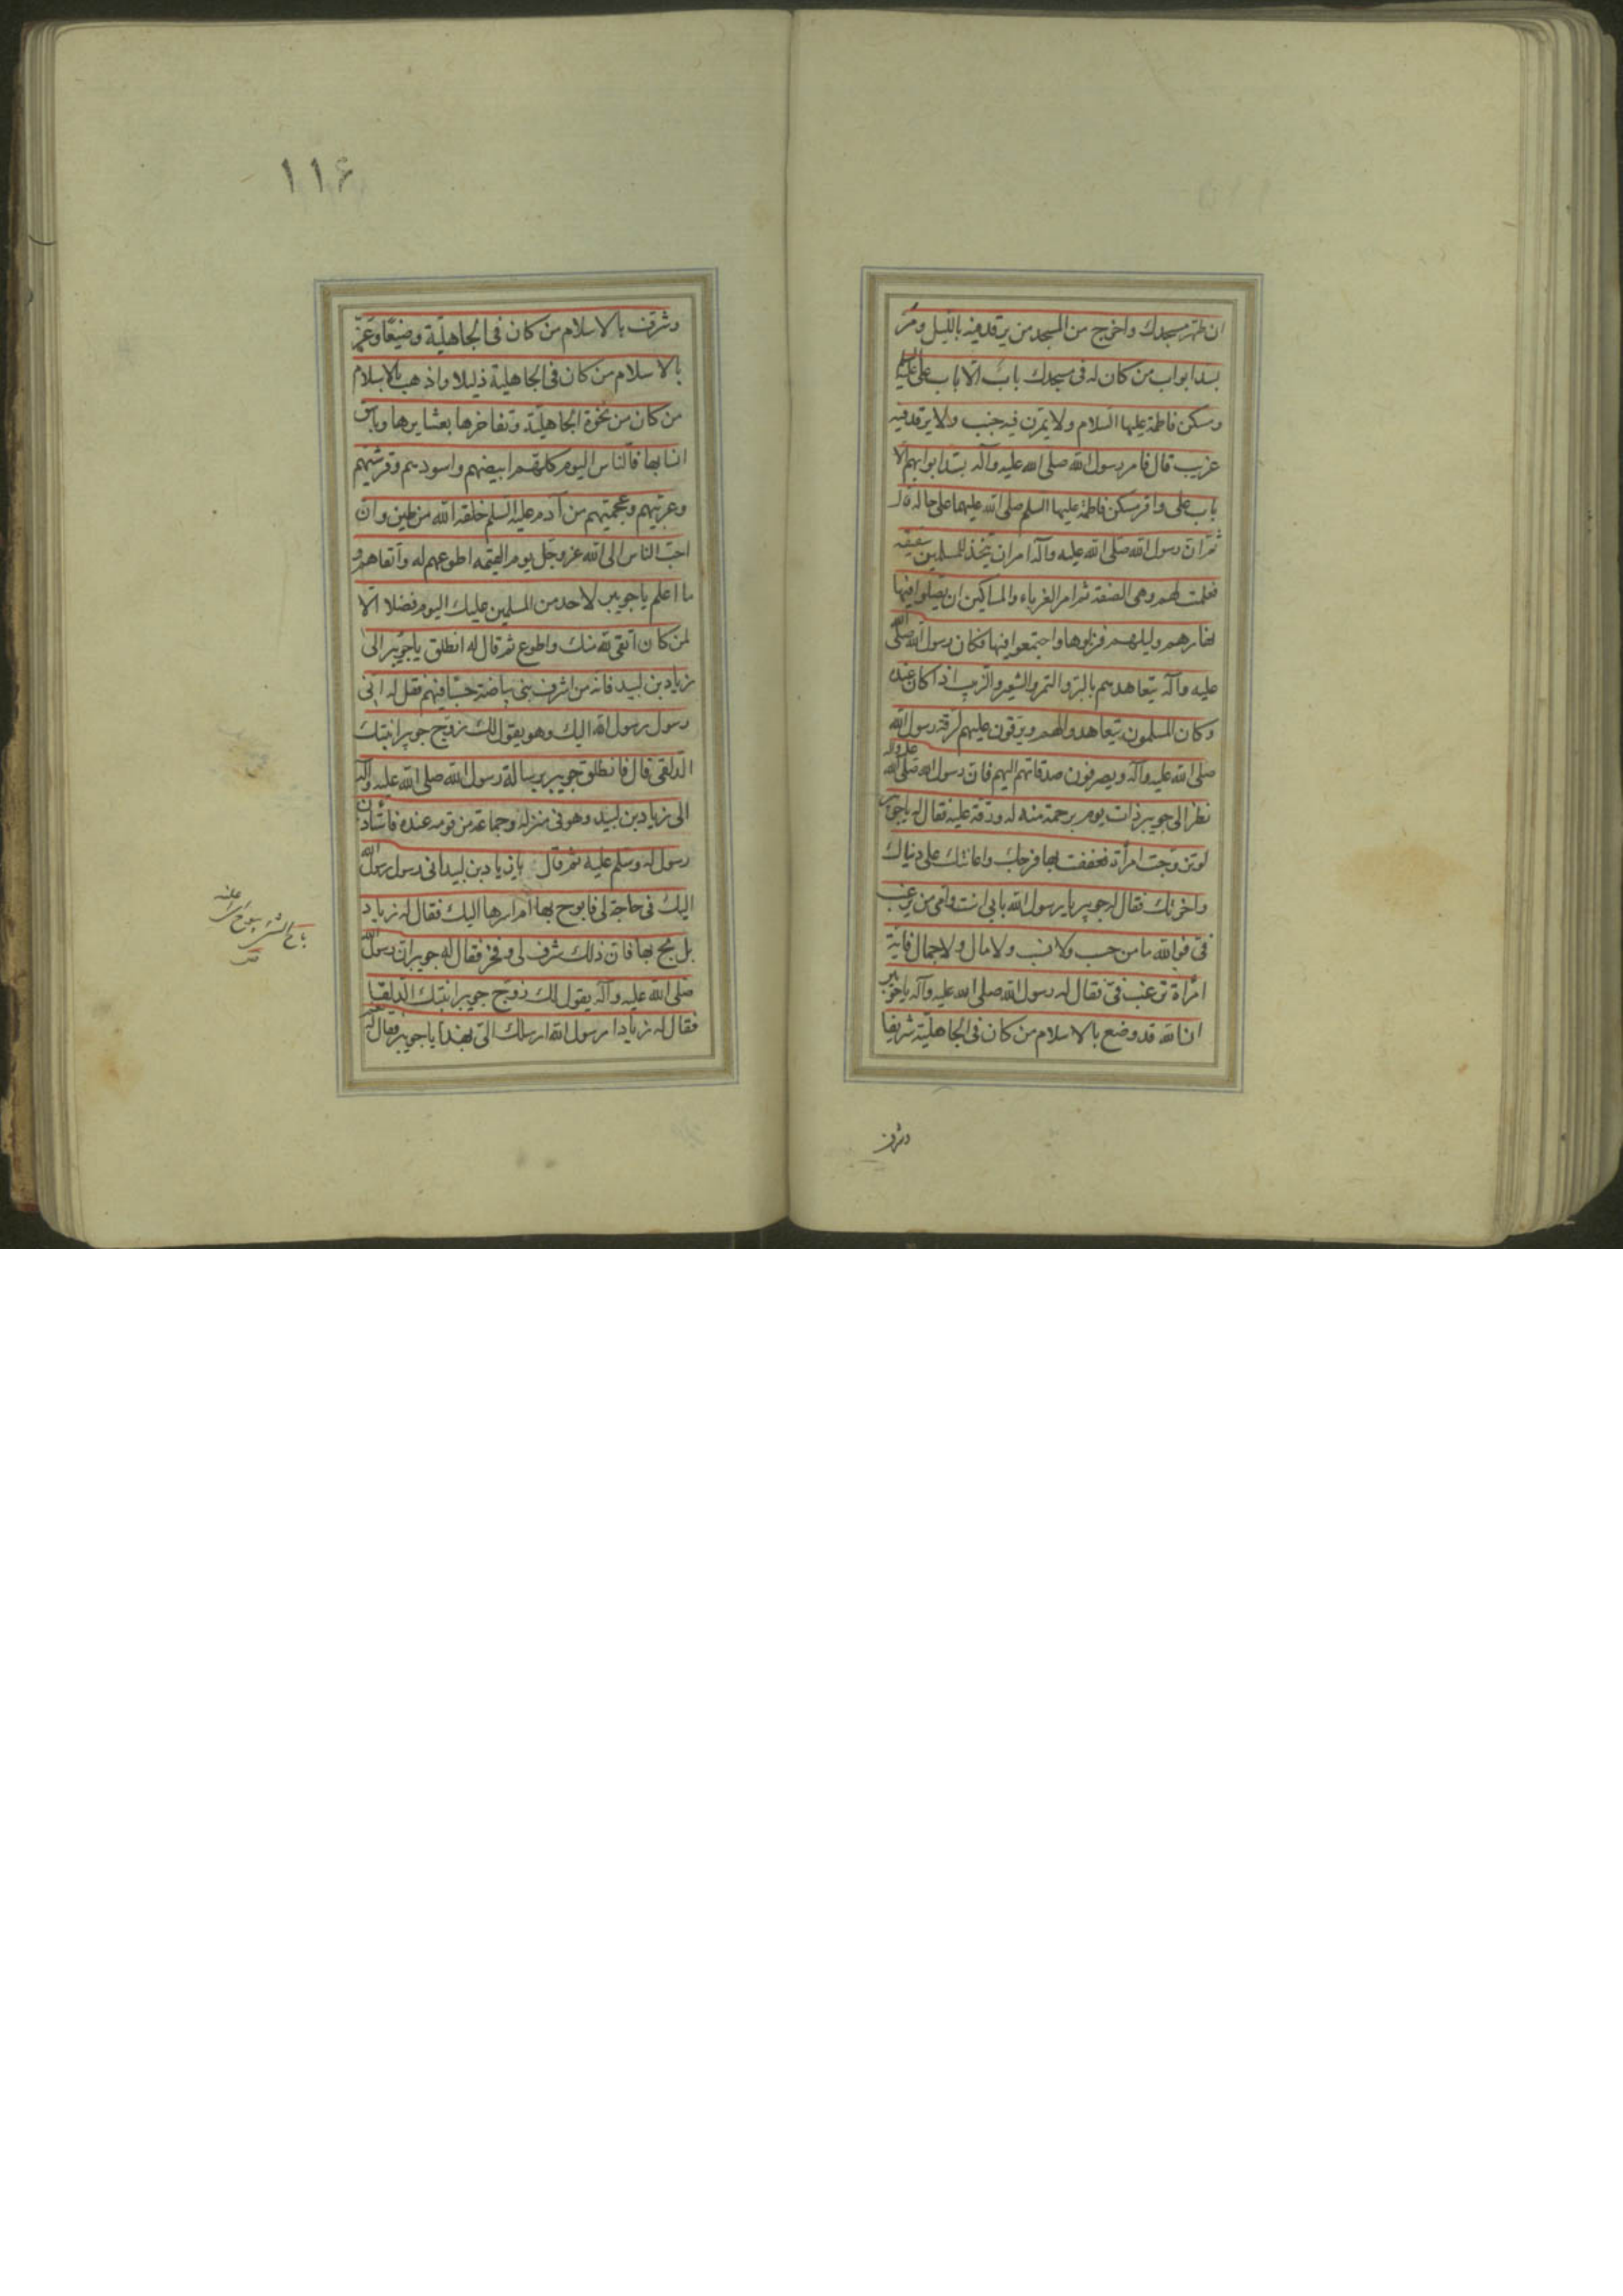 ان طهر مسجدك واخرج من المسجد من يرقد فيه بالليل ومر
بسد ابواب من كان له فى مسجدك باب الا باب على عليه السلم
ومسكن فاطمة عليها السلام ولا يمرن فيه جنب ولا يرقد فيه
غريب قال فامر رسول الله صلى الله عليه وآله بسد ابوابهم الا
باب على واقر مسكن فاطمة عليها السلم صلى الله عليهما على حاله قال
ثم ان رسول الله صلى الله عليه وآله امران يتخذ للمسلمين سقيفة
فعلمت لهم وهى الصفة ثم امر الغرباء والمساكين ان يضلوا فيها
نهارهم وليلهم فنزلوها واجتمعوا فيها فكان رسول الله صلى الله
عليه وآله يتعاهدهم بالبر والتمر والشعير والزبيب اذا كان عنده
وكان المسلمون يتعاهدوا لهم ويرقون عليهم لرقة رسول الله
صلى الله عليه وآله ويصرفون صدقاتهم اليهم فان رسول الله صلى الله عليه وآله
نظر الى جويبر ذات يوم برحمة منه له ورقة عليه فقال له يا جويبر
لو تزوجت امرأة فعففت بها فرجك واعانتك على دنياك
واخرتك فقال له جويبر يا رسول الله بابى انت وامى من يرغب
فى فوالله ما من حسب ولا نسب ولا مال ولا جمال فاية
امرأة ترغب فى فقال له رسول الله صلى الله عليه وآله يا جويبر
ان الله قد وضع بالاسلام من كان فى الجاهلية شريفا
وشرف
١١۶
وشرف بالاسلام من كان فى الجاهلية وضيعا وعز
بالاسلام من كان فى الجاهلية ذليلا واذهب بالاسلام
من كان من نخوة الجاهلية وتفاخرها بعشايرها وباسق
انسابها فالناس اليوم كلهم ابيضهم واسودهم وقرشيهم
وعربيهم وعجميهم من آدم عليه السلم خلقه الله من طين وان
احب الناس الى الله عز وجل يوم القيمة اطوعهم له واتقاهم و
ما اعلم يا جويبر لاحد من المسلمين عليك اليوم فضلا الا
لمن كان اتقى لله منك واطوع ثم قال له انطلق يا جويبر الى
زياد بن لبيد فانه من اشرف بنى بياضة حسبا فيهم فقل له انى
رسول رسول الله اليك وهو يقول لك زوج جويبرا ابنتك
الدلفى قال فانطلق جويبر برسالة رسول الله صلى الله عليه وآله
الى زياد بن لبيد وهو فى منزله وجماعة من قومه عنده فاستأذن
رسول له وسلم عليه ثم قال يا زياد بن لبيد انى رسول رسول الله
اليك فى حاجة لى فابوح بها ام اسرها اليك فقال له زياد
بل بح بها فان ذلك شرف لى وفخر فقال له جويبر ان رسول الله
صلى الله عليه وآله يقول لك زوج جويبرا ابنتك الدلفا
فقال له زياد ا رسول الله ارسلك الى بهذا يا جويبر فقال له نعم